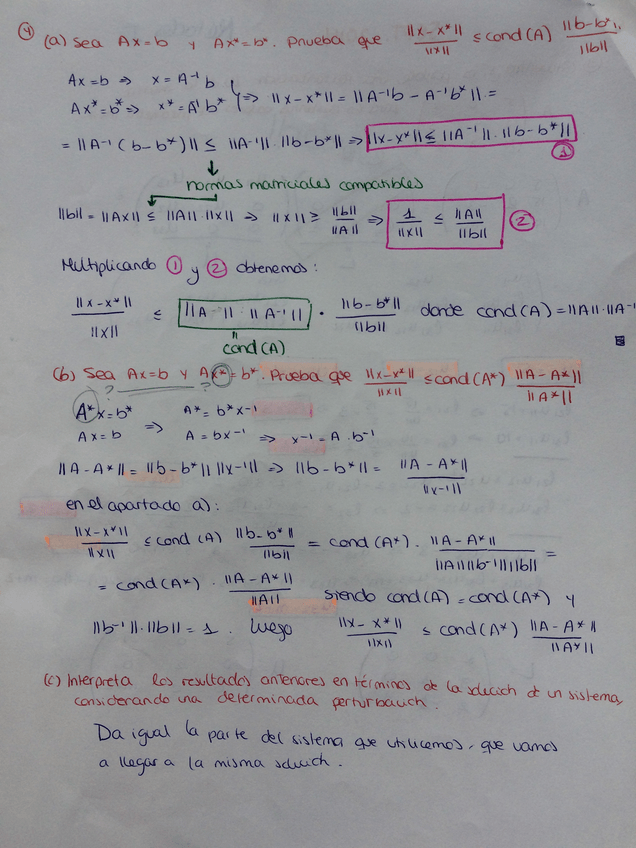 ④ (a) Sea Ax=b y Ax*=b*. Prueba que ||x-x*||/||x|| ≤ cond(A) ||b-b*||/||b||
Ax=b ⇒ x=A⁻¹b
Ax*=b* ⇒ x*=A⁻¹b* } ⇒ ||x-x*|| = ||A⁻¹b - A⁻¹b*|| =
= ||A⁻¹(b-b*)|| ≤ ||A⁻¹||·||b-b*|| ⇒ ||x-x*|| ≤ ||A⁻¹||·||b-b*|| ①
normas matriciales compatibles
||b|| = ||Ax|| ≤ ||A||·||x|| ⇒ ||x|| ≥ ||b||/||A|| ⇒ 1/||x|| ≤ ||A||/||b|| ②
Multiplicando ① y ② obtenemos:
||x-x*||/||x|| ≤ ||A⁻¹||·||A⁻¹|| · ||b-b*||/||b|| donde cond(A)=||A||·||A⁻¹
"
cond(A)
(b) Sea Ax=b y Ax*=b*. Prueba que ||x-x*||/||x|| ≤ cond(A*) ||A-A*||/||A*||
? ?
A*x=b* ⇒ A*=b*x⁻¹
Ax=b A=bx⁻¹ ⇒ x⁻¹=A·b⁻¹
||A-A*|| = ||b-b*|| ||x⁻¹|| ⇒ ||b-b*|| = ||A-A*||/||x⁻¹||
en el apartado a):
||x-x*||/||x|| ≤ cond(A) ||b-b*||/||b|| = cond(A*) · ||A-A*||/||A|| ||b⁻¹|| ||b|| =
= cond(A*) · ||A-A*||/||A|| siendo cond(A)=cond(A*) y
||b⁻¹||·||b||=1. Luego ||x-x*||/||x|| ≤ cond(A*) ||A-A*||/||A*||
(c) Interpreta los resultados anteriores en términos de la solución de un sistema,
considerando una determinada perturbación.
Da igual la parte del sistema que utilicemos, que vamos
a llegar a la misma solución.